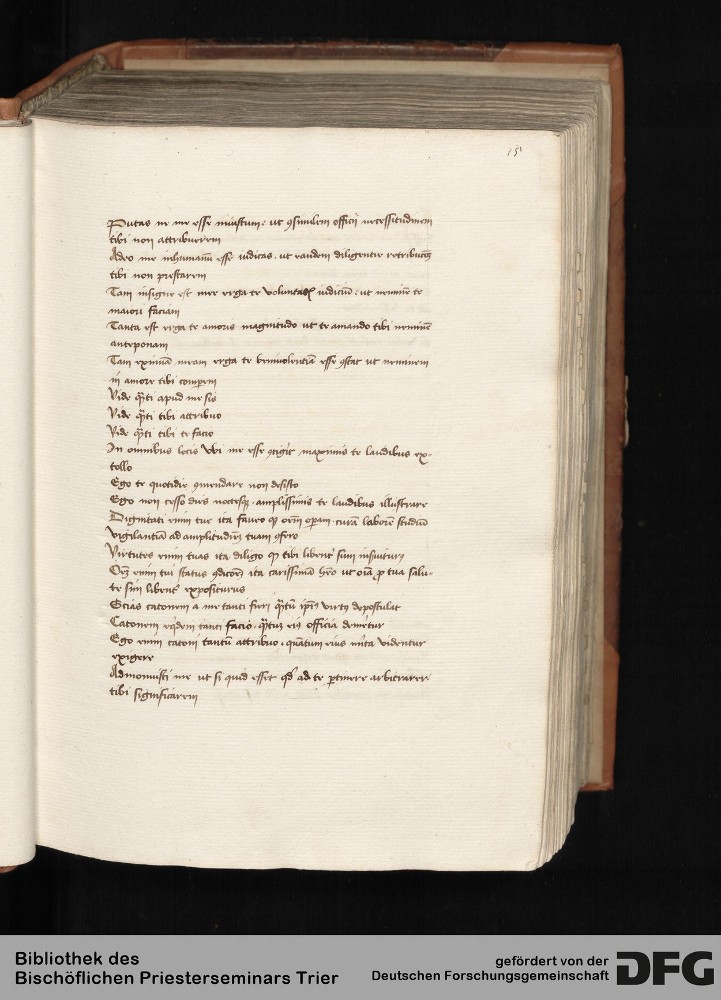 151
Putas ne me esse iniustum: ut consimilem officii necessitudinem
tibi non attribuerem
Adeo me inhumanū esse iudicas. ut eandem diligentie retributōȝ
tibi non prestarem
Tam insigne est mee erga te voluntatis iudiciū: ut neminē te
maiori faciam
Tanta est erga te amoris magnitudo ut te amando tibi neminē
anteponam
Tam eximiā meam erga te benivolentiā esse ꝯstat ut neminem
in amore tibi comperem
Vide qnti apud me sis
Vide qnti tibi attribuo
Vide qnti tibi te facio
In omnibus locis ubi me esse ꝯtigit maximis te laudibus ex-
tollo
Ego te quotidie ꝯmendare non desisto
Ego non cesso dies noctesqȝ amplissimis te laudibus illustrare
Dignitati enim tue ita faveo qȝ oēm opam. curā laborē studiū
vigilantiā ad amplitudinē tuam ꝯfero
Virtutes enim tuas ita diligo qȝ tibi libenter sim inserviturus
Oēȝ enim tui status ꝯdicōeȝ ita carissimā heo ut oīa ꝓ tua salu-
te sim libenter expositurus
Scias catonem a me tanti fieri qntū ipīus virtus depostulat
Catonem eqdem tanti facio. qntuȝ eius officia demētur
Ego enim catoni tantū attribuo. quātum eius mīta videntur
exigere
Admonuisti me ut si quid esset qd ad te ptinere arbitrarer
tibi significarem
Bibliothek des
Bischöflichen Priesterseminars Trier
gefördert von der
Deutschen Forschungsgemeinschaft
DFG